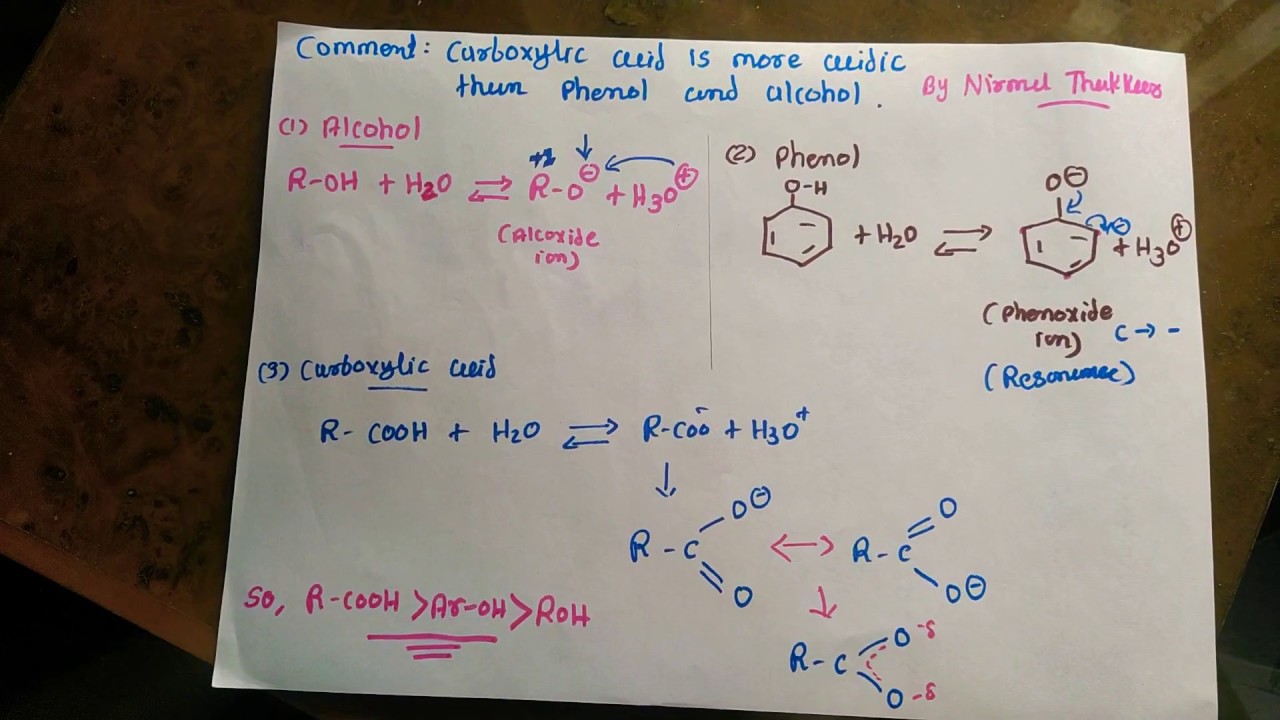 Comment: Carboxylic acid is more acidic
than Phenol and alcohol.
By Nirmal Thakkar
(1) Alcohol
R-OH + H2O ⇌ R-O⊖ + H3O⊕
(Alcoxide
ion)
(2) Phenol
O-H
+ H2O ⇌
O⊖
⊖
+ H3O⊕
(Phenoxide
ion)
C → -
(Resonance)
(3) Carboxylic acid
R- COOH + H2O ⇌ R-COO⁻ + H3O⁺
↓
R - C O⊖ O ↔ R - C O O⊖
↓
R - C O -δ O -δ
So, R-COOH > Ar-OH > ROH